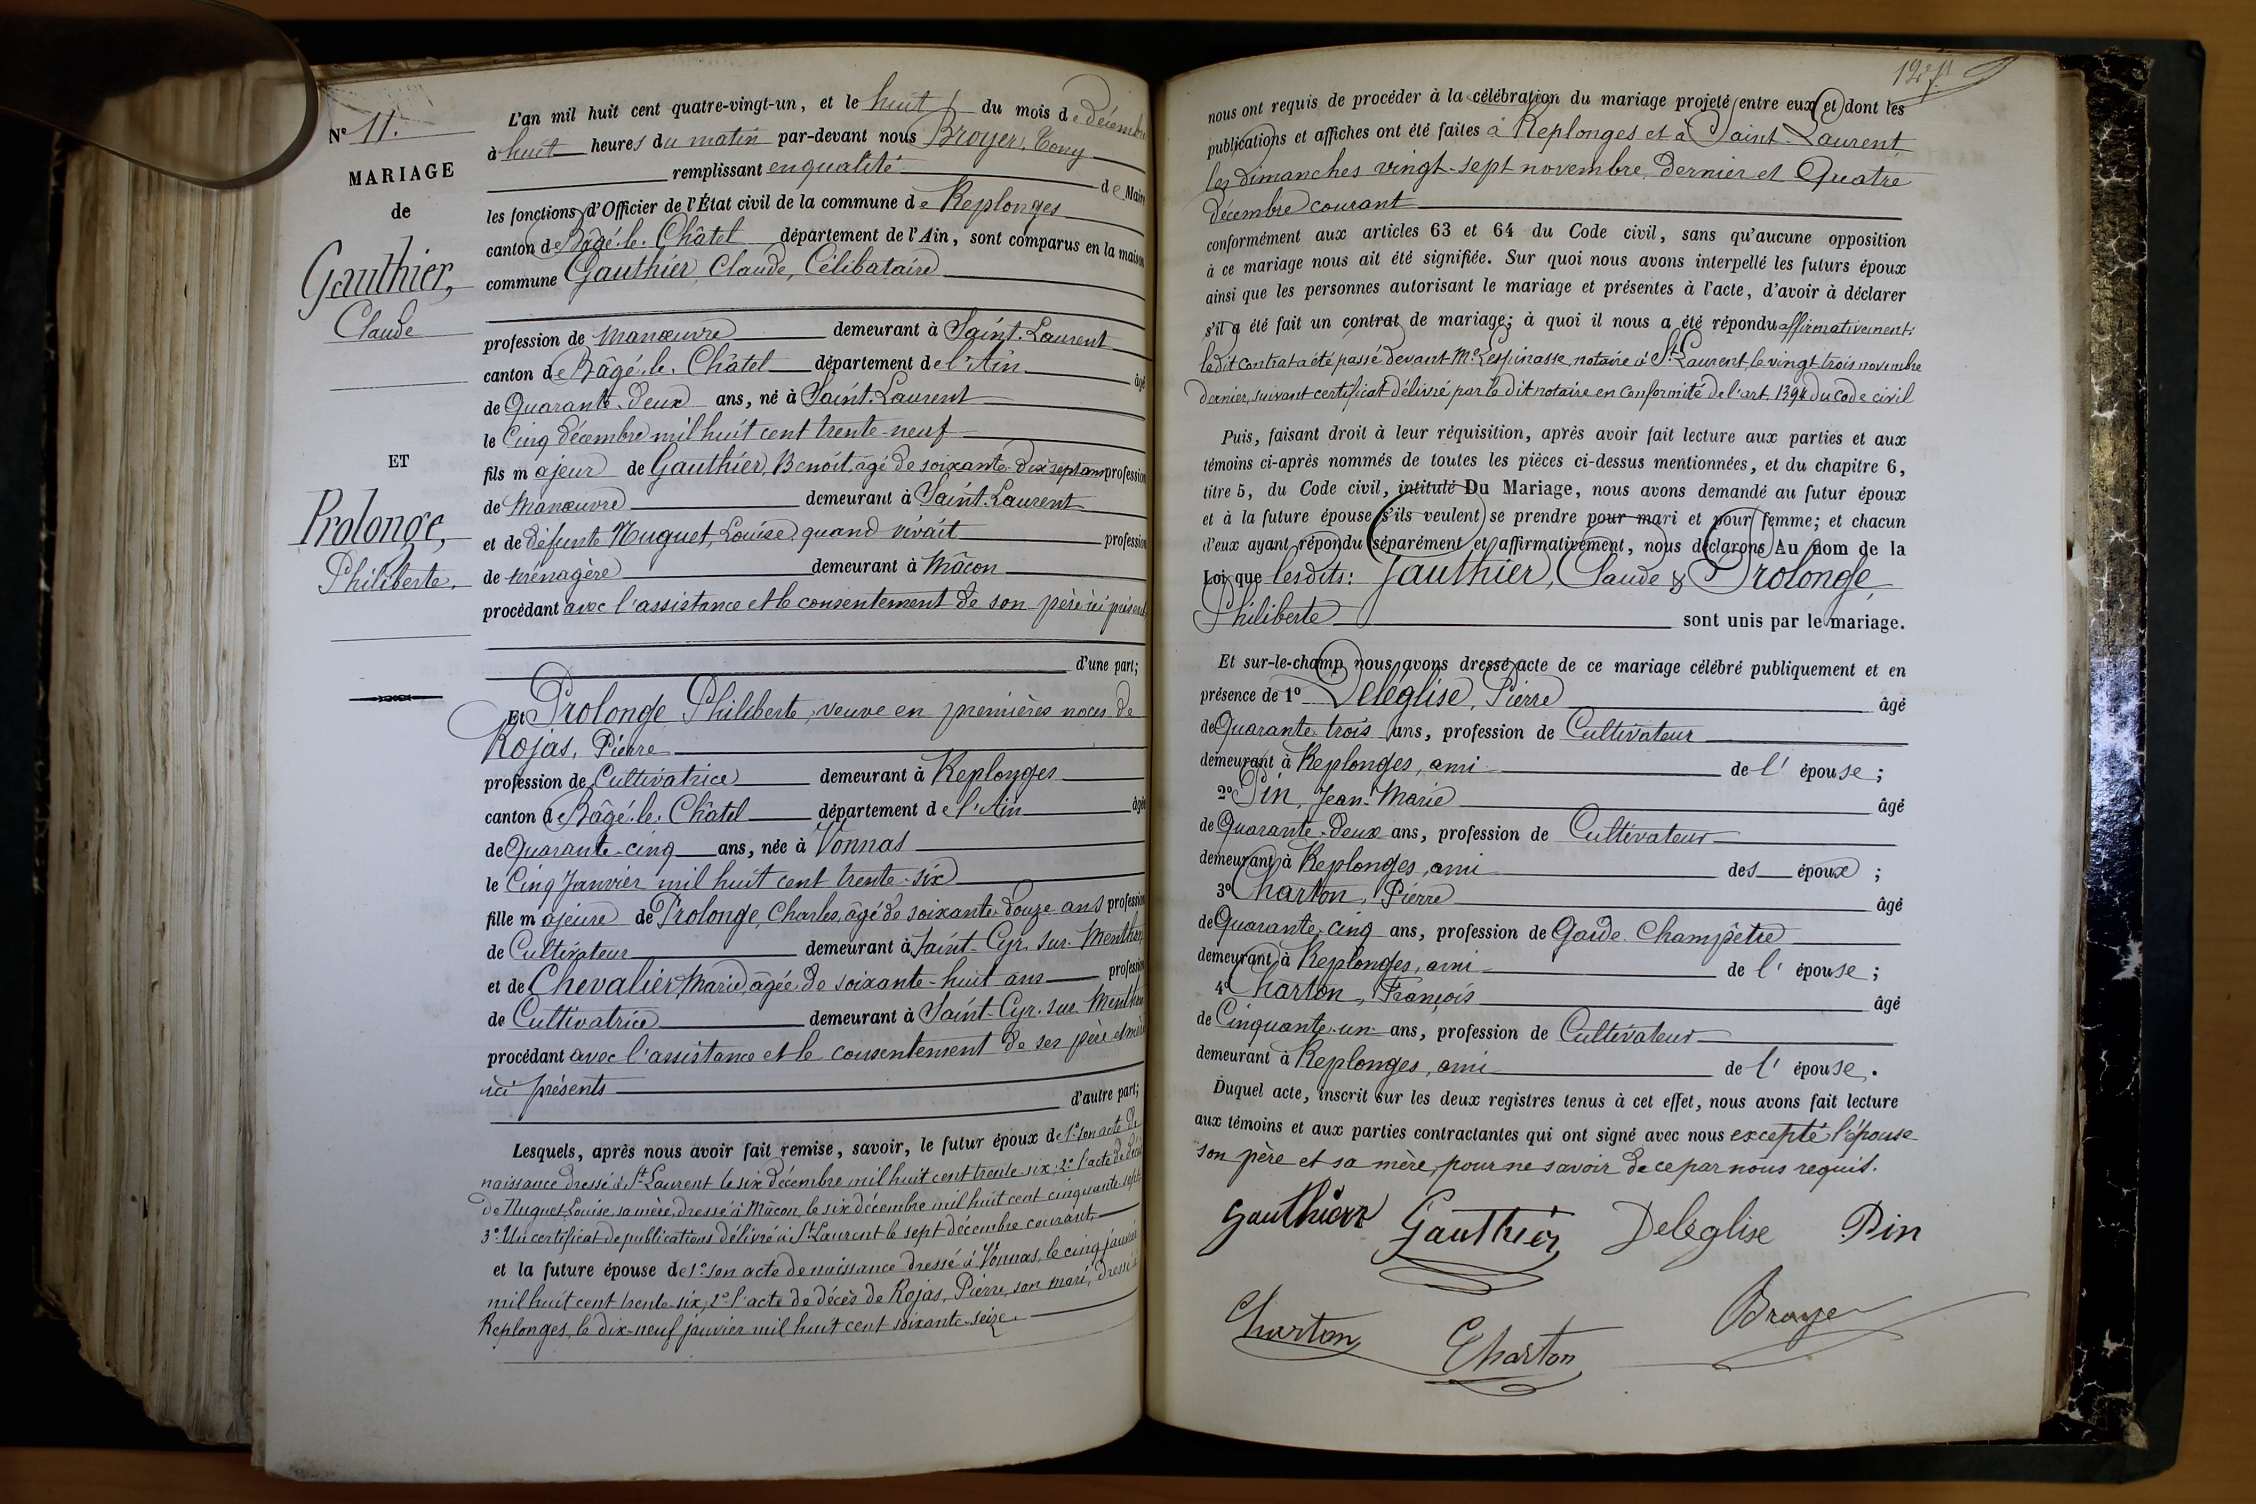 N° 11.
MARIAGE
de
Gauthier,
Claude
ET
Prolonge,
Philiberte.
L'an mil huit cent quatre-vingt-un, et le huit du mois de décembre
à huit heures du matin par-devant nous Broyer, Tony
remplissant en qualité de Maire
les fonctions d'Officier de l'État civil de la commune de Replonges
canton de Bâgé-le-Châtel département de l'Ain, sont comparus en la maison
commune Gauthier, Claude, Célibataire
profession de Manœuvre demeurant à Saint-Laurent
canton de Bâgé-le-Châtel département de l'Ain âgé
de Quarante-deux ans, né à Saint-Laurent
le Cinq décembre mil huit cent trente-neuf
fils majeur de Gauthier, Benoît, âgé de soixante-dix sept ans profession
de Manœuvre demeurant à Saint-Laurent
et de défunte Nuguet, Louise quand vivait profession
de ménagère demeurant à Mâcon
procédant avec l'assistance et le consentement de son père ici présent
d'une part;
Et Prolonge Philiberte, veuve en premières noces de
Rojas, Pierre
profession de Cultivatrice demeurant à Replonges
canton de Bâgé-le-Châtel département de l'Ain âgée
de Quarante-cinq ans, née à Vonnas
le Cinq Janvier mil huit cent trente-six
fille majeure de Prolonge, Charles, âgé de soixante-douze ans profession
de Cultivateur demeurant à Saint-Cyr-sur-Menthon
et de Chevalier Marie, âgée de soixante-huit ans profession
de Cultivatrice demeurant à Saint-Cyr-sur-Menthon
procédant avec l'assistance et le consentement de ses père et mère
ici présents
d'autre part;
Lesquels, après nous avoir fait remise, savoir, le futur époux de 1° son acte de
naissance dressé à St Laurent le six décembre mil huit cent trente-six; 2° l'acte de décès
de Nuguet, Louise, sa mère, dressé à Mâcon, le six décembre mil huit cent cinquante sept
3° Un certificat de publications délivré à St Laurent le sept décembre courant,
et la future épouse de 1° son acte de naissance dressé à Vonnas, le cinq janvier
mil huit cent trente-six; 2° l'acte de décès de Rojas, Pierre, son mari, dressé à
Replonges, le dix-neuf janvier mil huit cent soixante-seize.
nous ont requis de procéder à la célébration du mariage projeté entre eux et dont les
publications et affiches ont été faites à Replonges et à Saint-Laurent
les dimanches vingt-sept novembre dernier et Quatre
décembre courant
conformément aux articles 63 et 64 du Code civil, sans qu'aucune opposition
à ce mariage nous ait été signifiée. Sur quoi nous avons interpellé les futurs époux
ainsi que les personnes autorisant le mariage et présentes à l'acte, d'avoir à déclarer
s'il a été fait un contrat de mariage; à quoi il nous a été répondu affirmativement:
ledit contrat a été passé devant Me Lespinasse, notaire à St Laurent, le vingt trois novembre
dernier, suivant certificat délivré par le dit notaire en conformité de l'art. 1394 du code civil
Puis, faisant droit à leur réquisition, après avoir fait lecture aux parties et aux
témoins ci-après nommés de toutes les pièces ci-dessus mentionnées, et du chapitre 6,
titre 5, du Code civil, intitulé Du Mariage, nous avons demandé au futur époux
et à la future épouse s'ils veulent se prendre pour mari et pour femme; et chacun
d'eux ayant répondu séparément et affirmativement, nous déclarons Au nom de la
Loi que lesdits: Gauthier, Claude & Prolonge,
Philiberte sont unis par le mariage.
Et sur-le-champ nous avons dressé acte de ce mariage célébré publiquement et en
présence de 1° Deléglise, Pierre âgé
de Quarante-trois ans, profession de Cultivateur
demeurant à Replonges, ami de l'épouse;
2° Pin, Jean-Marie âgé
de Quarante-deux ans, profession de Cultivateur
demeurant à Replonges, ami des époux;
3° Charton, Pierre âgé
de Quarante-cinq ans, profession de Garde Champêtre
demeurant à Replonges, ami de l'épouse;
4° Charton, François âgé
de Cinquante-un ans, profession de Cultivateur
demeurant à Replonges, ami de l'épouse.
Duquel acte, inscrit sur les deux registres tenus à cet effet, nous avons fait lecture
aux témoins et aux parties contractantes qui ont signé avec nous excepté l'épouse
son père et sa mère, pour ne savoir de ce par nous requis.
Gauthier Gauthier Deleglise Pin
Charton Charton Broyer